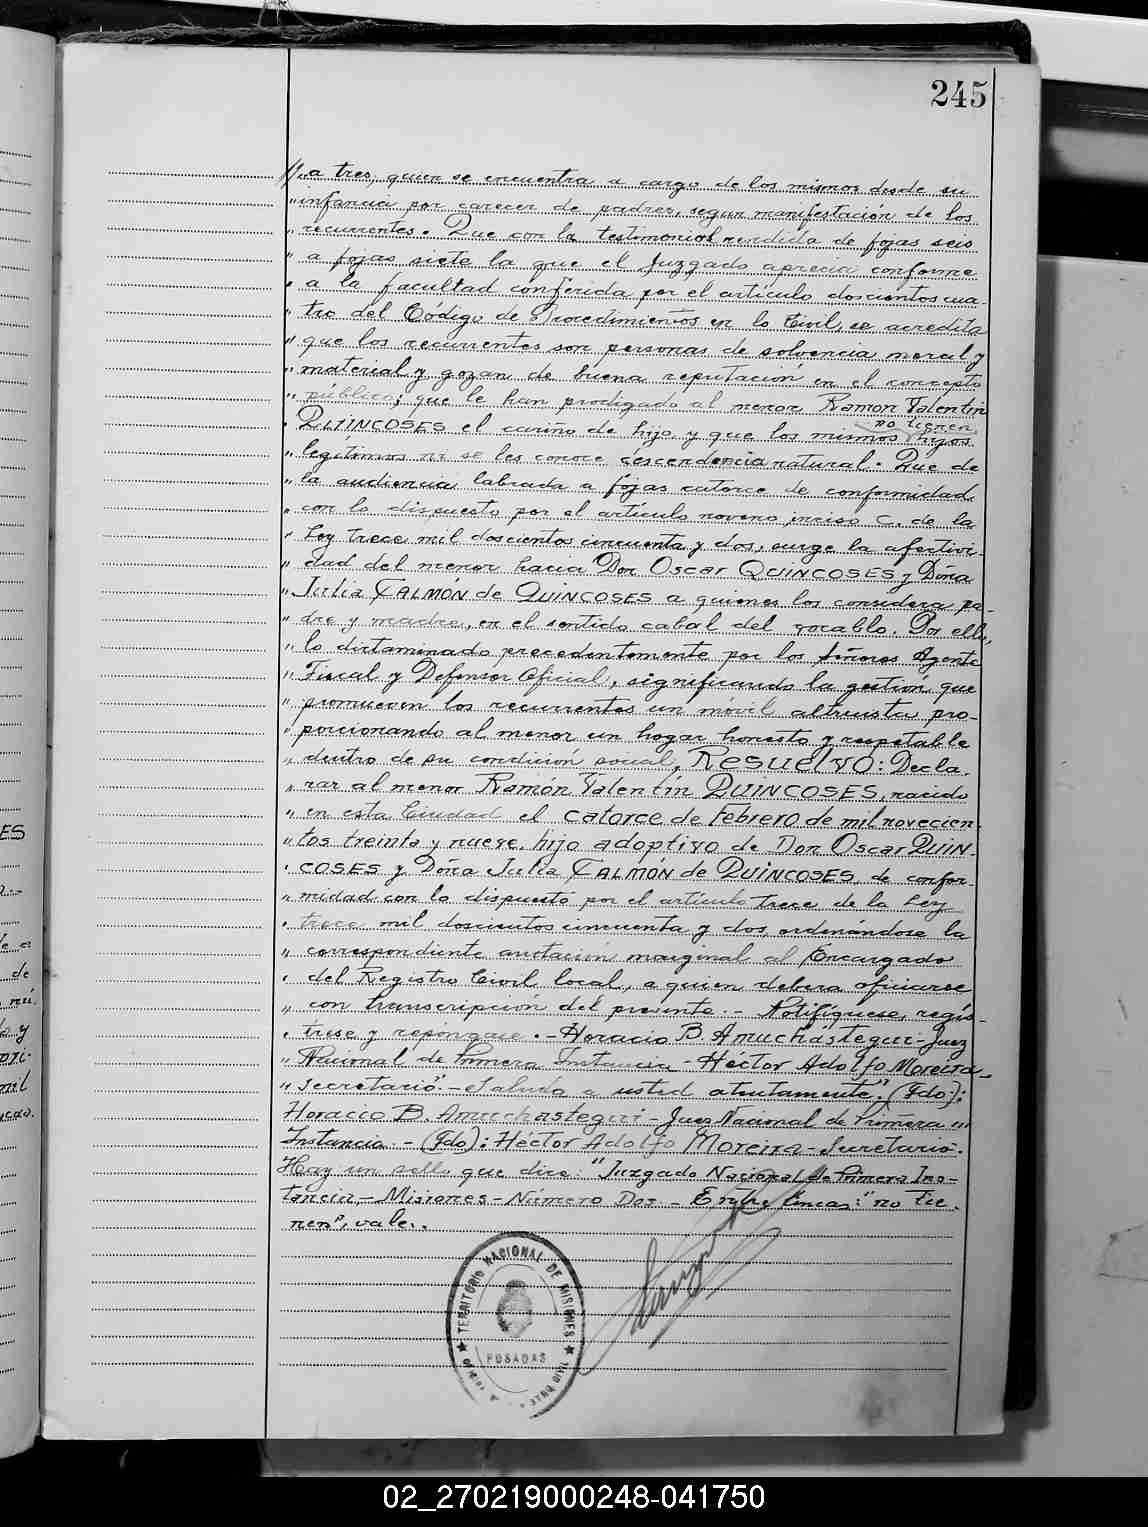 245
//..a tres, quien se encuentra a cargo de los mismos desde su
" infancia por carecer de padres, segun manifestación de los
" recurrentes. Que con la testimonial rendida de fojas seis
" a fojas siete la que el Juzgado aprecia conforme
" a la facultad conferida por el artículo doscientos cua-
" tro del Código de Procedimientos en lo Civil, se acredita
" que los recurrentes son personas de solvencia moral y
" material y gozan de buena reputación en el concepto
" público; que le han prodigado al menor Ramon Valentin
no tienen
" QUINCOSES el cariño de hijo y que los mismos hijos
" legítimos ni se les conoce descendencia natural. Que de
" la audiencia labrada a fojas catorce de conformidad
" con lo dispuesto por el artículo noveno inciso C. de la
" Ley trece mil doscientos cincuenta y dos, surge la afectivi-
" dad del menor hacia Don Oscar QUINCOSES y Doña
" Julia TALMÓN de QUINCOSES a quienes los considera pa-
" dre y madre, en el sentido cabal del vocablo. Por ello,
" lo dictaminado precedentemente por los Señores Agente
" Fiscal y Defensor Oficial, significando la gestión que
" promueven los recurrentes un móvil altruista pro-
" porcionando al menor un hogar honesto y respetable
" dentro de su condición social, RESUELVO: Decla-
" rar al menor Ramón Valentín QUINCOSES, nacido
" en esta Ciudad el catorce de febrero de mil novecien-
" tos treinta y nueve, hijo adoptivo de Don Oscar QUIN-
" COSES y Doña Julia TALMÓN de QUINCOSES, de confor-
" midad con lo dispuesto por el artículo trece de la Ley
" trece mil doscientos cincuenta y dos, ordenándose la
" correspondiente anotación marginal al Encargado
" del Registro Civil local, a quien deberá oficiarse
" con transcripción del presente.- Notifíquese, regís-
" trese y repóngase.-Horacio B. Amuchástegui-Juez
" Nacional de Primera Instancia-Héctor Adolfo Moreira-
" secretario".-Saluda a usted atentamente". (Fdo):
Horacio B. Amuchastegui-Juez Nacional de Primera
Instancia.-(Fdo): Héctor Adolfo Moreira-Secretario-.
Hay un sello que dice: "Juzgado Nacional de Primera Ins-
tancia-Misiones-Número Dos.- Entre líneas: "no tie-
nen", vale.
TERRITORIO NACIONAL DE MISIONES
POSADAS
02_270219000248-041750